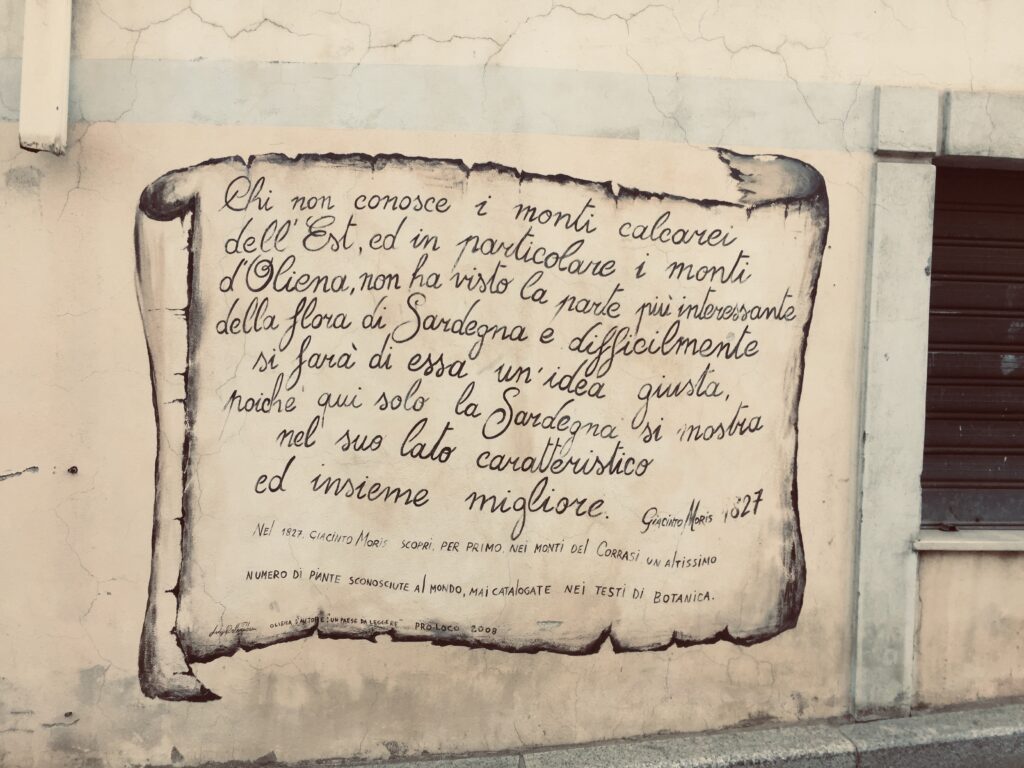 Chi non conosce i monti calcarei
dell'Est, ed in particolare i monti
d'Oliena, non ha visto la parte più interessante
della flora di Sardegna e difficilmente
si farà di essa un'idea giusta,
poiché qui solo la Sardegna si mostra
nel suo lato caratteristico
ed insieme migliore.
Giacinto Moris 1827
Nel 1827, Giacinto Moris scoprì, per primo, nei monti del Corrasi un altissimo
numero di piante sconosciute al mondo, mai catalogate nei testi di botanica.
Oliena d'autore: "un paese da leggere" Pro-Loco 2008